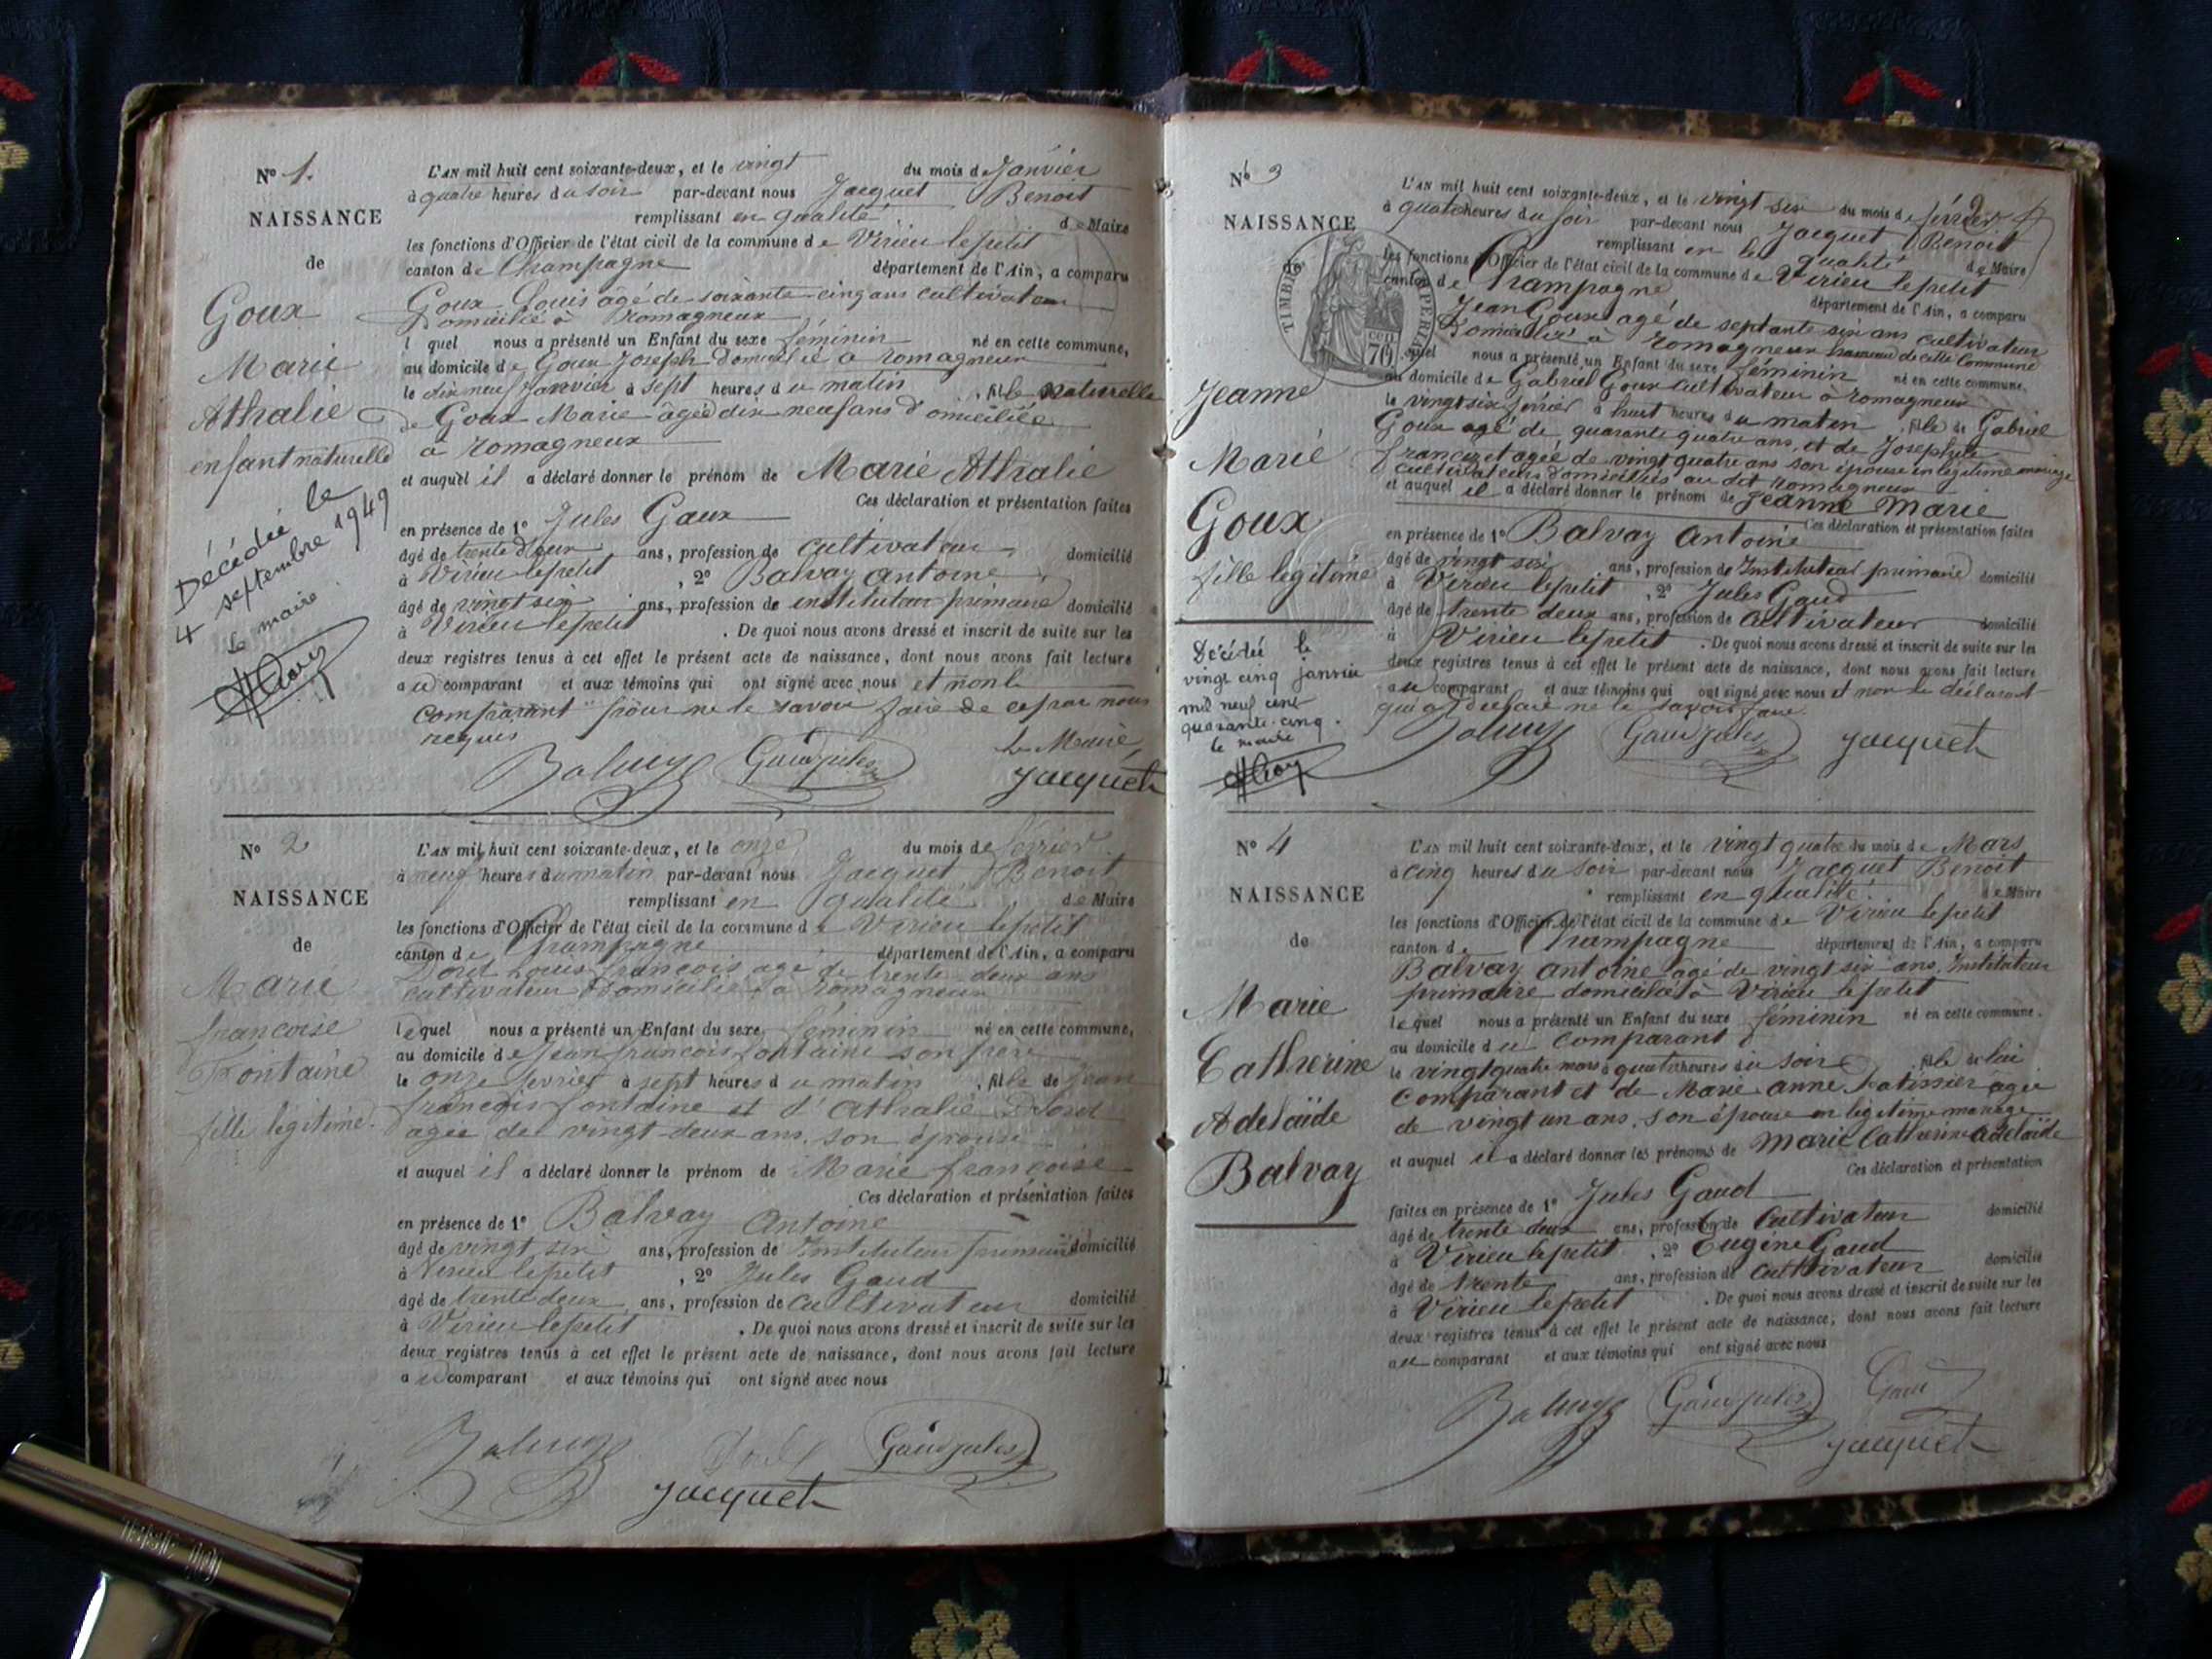 N° 1.
NAISSANCE
de
Goux
Marie
Athalie
enfant naturelle
Décédée le
4 septembre 1949
Le maire
L'AN mil huit cent soixante-deux, et le vingt du mois de Janvier
à quatre heures du soir par-devant nous Jacquet Benoit
remplissant en qualité de Maire
les fonctions d'Officier de l'état civil de la commune de Virieu le petit
canton de Champagne département de l'Ain, a comparu
Goux Louis âgé de soixante-cinq ans cultivateur
Domicilié à Romagneux
lequel nous a présenté un Enfant du sexe féminin né en cette commune,
au domicile de Goux Joseph Domicilié à romagneux
le dix neuf janvier à sept heures du matin , fille naturelle
de Goux Marie âgée dix neuf ans domiciliée
à romagneux
et auquel il a déclaré donner le prénom de Marie Athalie
Ces déclaration et présentation faites
en présence de 1° Jules Gaux
âgé de trente deux ans, profession de cultivateur domicilié
à Virieu le petit , 2° Balvay Antoine
âgé de vingt six ans, profession de instituteur primaire domicilié
à Virieu le petit . De quoi nous avons dressé et inscrit de suite sur les
deux registres tenus à cet effet le présent acte de naissance, dont nous avons fait lecture
au comparant et aux témoins qui ont signé avec nous et non le
comparant pour ne le savoir faire de ce par nous
requis
Balvay Gaud jules Le Maire
Jacquet
N° 2
NAISSANCE
de
Marie
françoise
Fontaine
fille légitime.
L'AN mil huit cent soixante-deux, et le onze du mois de février
à neuf heures du matin par-devant nous Jacquet Benoit
remplissant en qualité de Maire
les fonctions d'Officier de l'état civil de la commune de Virieu le petit
canton de Champagne département de l'Ain, a comparu
Louis françois âgé de trente deux ans
cultivateur Domicilié à romagneux
lequel nous a présenté un Enfant du sexe féminin né en cette commune,
au domicile de Jean françois fontaine son frère
le onze février à sept heures du matin , fille de Jean
françois fontaine et d'Athalie
agée de vingt-deux ans, son épouse
et auquel il a déclaré donner le prénom de Marie françoise
Ces déclaration et présentation faites
en présence de 1° Balvay Antoine
âgé de vingt six ans, profession de Instituteur primaire domicilié
à Virieu le petit , 2° Jules Gaud
âgé de trente deux ans, profession de cultivateur domicilié
à Virieu le petit . De quoi nous avons dressé et inscrit de suite sur les
deux registres tenus à cet effet le présent acte de naissance, dont nous avons fait lecture
au comparant et aux témoins qui ont signé avec nous
Balvay Gaud jules
Jacquet
N° 3
NAISSANCE
de
TIMBRE IMPERIAL
70 CEN
Jeanne
Marie
Goux
fille legitime
Décédée le
vingt cinq janvier
mil neuf cent
quarante-cinq.
le maire
L'AN mil huit cent soixante-deux, et le vingt six du mois de février
à quatre heures du soir par-devant nous Jacquet Benoit
remplissant en la qualité de Maire
les fonctions d'Officier de l'état civil de la commune de Virieu le petit
canton de Champagne département de l'Ain, a comparu
Jean Goux agé de septante six ans cultivateur
Domicilié à romagneux hameau de cette Commune
lequel nous a présenté un Enfant du sexe féminin né en cette commune,
au domicile de Gabriel Goux cultivateur à romagneux
le vingt six février à huit heures du matin , fille de Gabriel
Goux agé de quarante quatre ans, et de Josephte
francizet agée de vingt quatre ans son épouse en légitime mariage
cultivateurs domiciliés au dit romagneux
et auquel il a déclaré donner le prénom de Jeanne Marie
Ces déclaration et présentation faites
en présence de 1° Balvay Antoine
âgé de vingt six ans, profession de Instituteur primaire domicilié
à Virieu le petit , 2° Jules Gaud
âgé de trente deux ans, profession de Cultivateur domicilié
à Virieu le petit . De quoi nous avons dressé et inscrit de suite sur les
deux registres tenus à cet effet le présent acte de naissance, dont nous avons fait lecture
au comparant et aux témoins qui ont signé avec nous et non le déclarant
qui a déclaré ne le savoir faire.
Balvay Gaud jules Jacquet
N° 4
NAISSANCE
de
Marie
Catherine
Adelaïde
Balvay
L'AN mil huit cent soixante-deux, et le vingt quatre du mois de Mars
à cinq heures du soir par-devant nous Jacquet Benoit
remplissant en qualité de Maire
les fonctions d'Officier de l'état civil de la commune de Virieu le petit
canton de Champagne département de l'Ain, a comparu
Balvay Antoine agé de vingt six ans, Instituteur
primaire domicilié à Virieu le petit
lequel nous a présenté un Enfant du sexe féminin né en cette commune,
au domicile du comparant
le vingt quatre mars à quatre heures du soir , fille de lui
comparant et de Marie anne Patissier agée
de vingt un ans, son épouse en légitime mariage
et auquel il a déclaré donner les prénoms de Marie Catherine Adelaïde
Ces déclaration et présentation
faites en présence de 1° Jules Gaud
âgé de trente deux ans, profession de Cultivateur domicilié
à Virieu le petit , 2° Eugène Gaud
âgé de trente ans, profession de Cultivateur domicilié
à Virieu le petit . De quoi nous avons dressé et inscrit de suite sur les
deux registres tenus à cet effet le présent acte de naissance, dont nous avons fait lecture
au comparant et aux témoins qui ont signé avec nous
Balvay Gaud jules Gaud
Jacquet